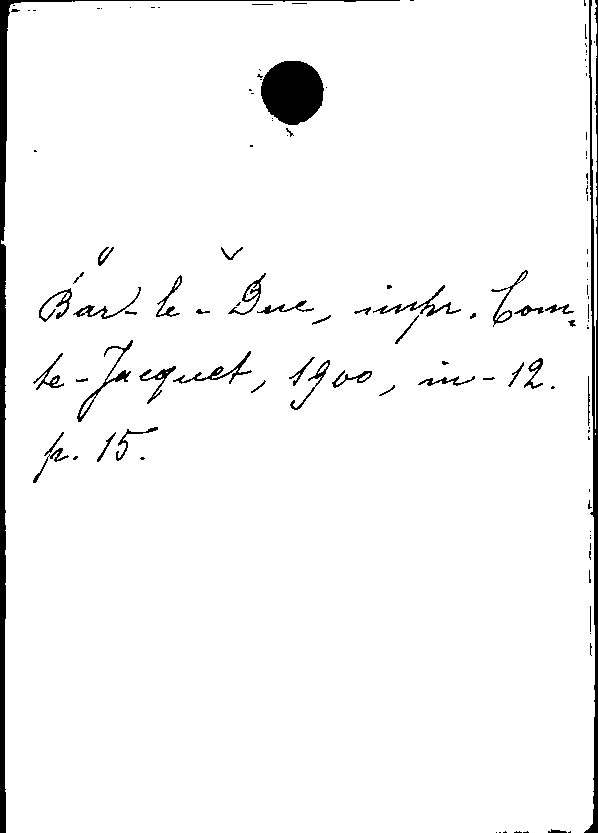 Bar-le-Duc, impr. Com-
te-Jacquet, 1900, in-12.
p. 15.